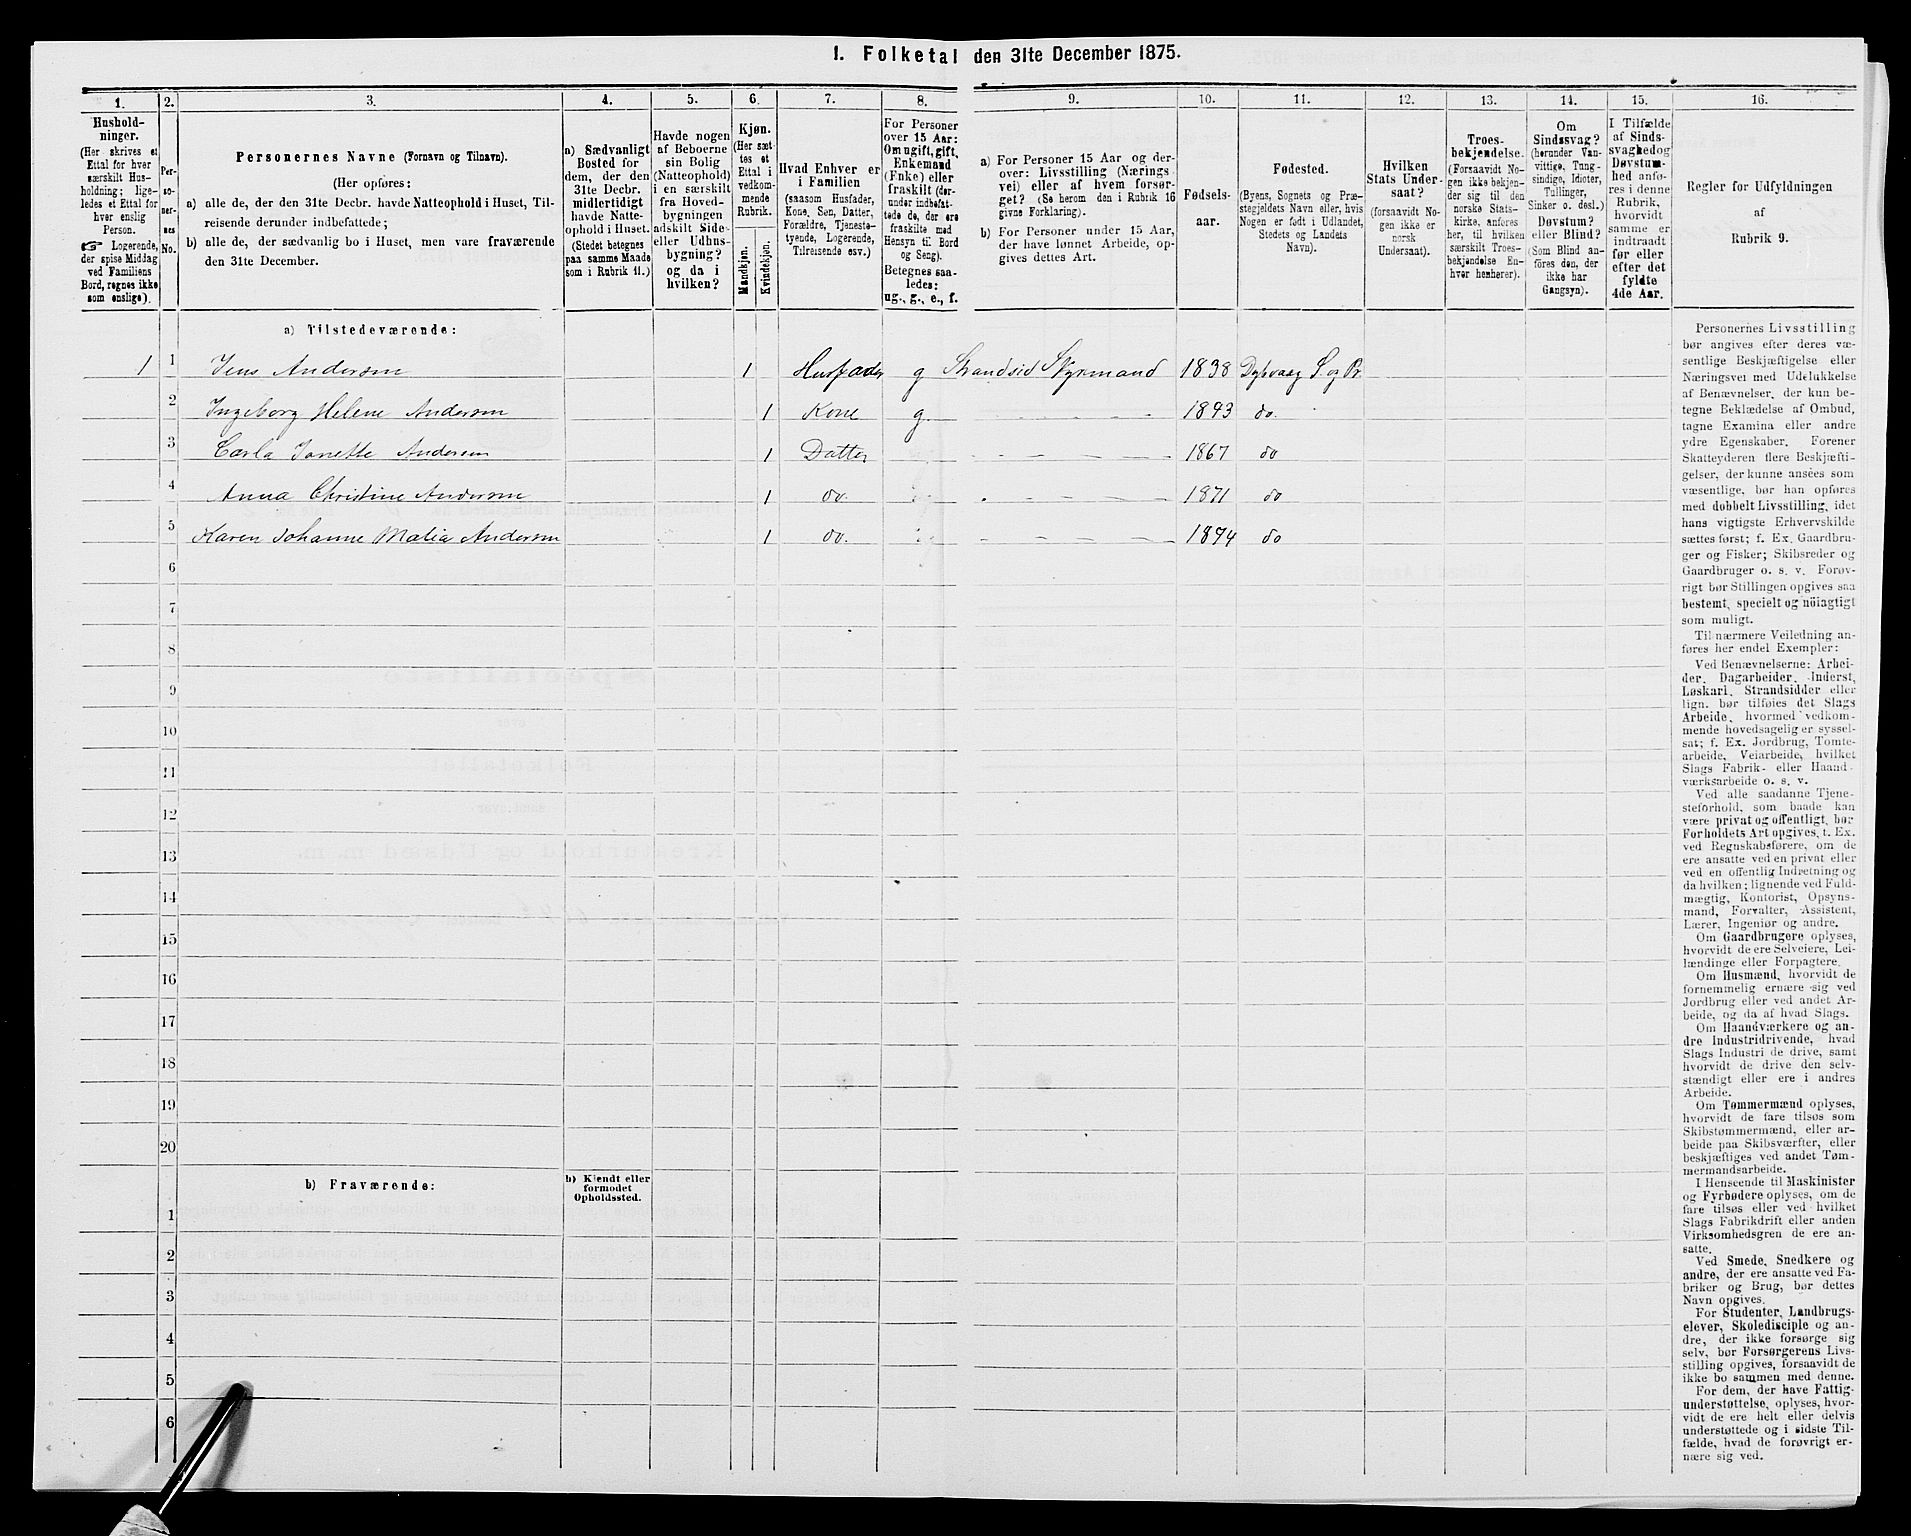 I. Folketal den 31te December 1875.
1. 2. 3. 4. 5. 6. 7. 8. 9. 10. 11. 12. 13. 14. 15. 16.
Hushold-
ninger.
(Her skrives et
Ettal for hver
særskilt Hus-
holdning; lige-
ledes et Ettal for
hver enslig
Person.
☞ Logerende,
der spise Middag
ved Familiens
Bord, regnes ikke
som enslige).
Per-
so-
ner-
nes
No.
Personernes Navne (Fornavn og Tilnavn).
(Her opføres:
a) alle de, der den 31te Decbr. havde Natteophold i Huset, Til-
reisende derunder indbefattede;
b) alle de, der sædvanlig bo i Huset, men vare fraværende
den 31te December.
a) Sædvanligt
Bosted for
dem, der den
31te Decbr.
midlertidigt
havde Natte-
ophold i Huset.
(Stedet betegnes
paa samme Maade
som i Rubrik 11.)
Havde nogen
af Beboerne
sin Bolig
(Natteophold)
i en særskilt
fra Hoved-
bygningen
adskilt Side-
eller Udhus-
bygning?
og da i
hvilken?
Kjøn.
(Her sæt-
tes et
Ettal i
vedkom-
mende
Rubrik.
Mandkjøn.
Kvindekjøn.
Hvad Enhver er
i Familien
(saasom Husfader,
Kone, Søn, Datter,
Forældre, Tjeneste-
tyende, Logerende,
Tilreisende osv.)
For Personer
over 15 Aar:
Om ugift, gift,
Enkemand
(Enke) eller
fraskilt (der-
under indbefat-
tede de, der ere
fraskilte med
Hensyn til Bord
og Seng).
Betegnes saa-
ledes:
ug., g., e., f.
a) For Personer 15 Aar og der-
over: Livsstilling (Nærings-
vei) eller af hvem forsør-
get? (Se herom den i Rubrik 16
givne Forklaring).
b) For Personer under 15 Aar,
der have lønnet Arbeide, op-
gives dettes Art.
Fødsels-
aar.
Fødested.
(Byens, Sognets og Præ-
stegjeldets Navn eller, hvis
Nogen er født i Udlandet,
Stedets og Landets
Navn).
Hvilken
Stats Under-
saat?
(forsaavidt No-
gen ikke er
norsk
Undersaat).
Troes-
bekjendelse.
(Forsaavidt No-
gen ikke bekjen-
der sig til den
norske Stats-
kirke, anføres
her, til hvilken
særskilt Troes-
bekjendelse En-
hver henhører).
Om
Sindssvag?
(herunder Van-
vittige, Tung-
sindige, Idioter,
Tullinger,
Sinker o. desl.)
Døvstum?
eller Blind?
(Som Blind an-
føres den, der
ikke har
Gangsyn).
I Tilfælde
af Sinds-
svaghed og
Døvstum-
hed anfø-
res i denne
Rubrik,
hvorvidt
samme er
indtraadt
før eller
efter det
fyldte
4de Aar.
Regler for Udfyldningen
af
Rubrik 9.
a) Tilstedeværende:
1 1 Jens Andersen 1 Husfader g Strandsid Styrmand 1838 Dybvaag S. og Pr.
2 Ingeborg Helene Andersen 1 Kone g. 1843 do.
3 Carla Janette Andersen 1 Datter 1867 do
4 Anna Christine Andersen 1 do. 1871 do
5 Karen Johanne Malia Andersen 1 do. 1874 do
6
7
8
9
10
11
12
13
14
15
16
17
18
19
20
b) Fraværende:
b) Kjendt eller
formodet
Opholdssted.
1
2
3
4
5
6
Personernes Livsstilling
bør angives efter deres væ-
sentlige Beskjæftigelse eller
Næringsvei med Udelukkelse
af Benævnelser, der kun be-
tegne Beklædelse af Ombud,
tagne Examina eller andre
ydre Egenskaber. Forener
Skatteyderen flere Beskjæfti-
gelser, der kunne ansées som
væsentlige, bør han opføres
med dobbelt Livsstilling, idet
hans vigtigste Erhvervskilde
sættes først; f. Ex. Gaardbru-
ger og Fisker; Skibsreder og
Gaardbruger o. s. v. Forøv-
rigt bør Stillingen opgives saa
bestemt, specielt og nöiagtigt
som muligt.
Til nærmere Veiledning an-
føres her endel Exempler:
Ved Benævnelserne: Arbei-
der, Dagarbeider, Inderst,
Løskarl, Strandsidder eller
lign. bør tilføies det Slags
Arbeide, hvormed vedkom-
mende hovedsagelig er syssel-
sat; f. Ex. Jordbrug, Tomte-
arbeide, Veiarbeide, hvilket
Slags Fabrik- eller Haand-
værksarbeide o. s. v.
Ved alle saadanne Tjene-
steforhold, som baade kan
være privat og offentligt, bør
Forholdets Art opgives, t. Ex.
ved Regnskabsførere, om de
ere ansatte ved en privat eller
ved en offentlig Indretning og
da hvilken; lignende ved Fuld-
mægtig, Kontorist, Opsyns-
mand, Forvalter, Assistent,
Lærer, Ingeniør og andre.
Om Gaardbrugere oplyses,
hvorvidt de ere Selveiere, Lei-
lændinge eller Forpagtere.
Om Husmænd, hvorvidt de
fornemmelig ernære sig ved
Jordbrug eller ved andet Ar-
beide, og da af hvad Slags.
Om Haandværkere og an-
dre Industridrivende, hvad
Slags Industri de drive, samt
hvorvidt de drive den selv-
stændigt eller ere i andres
Arbeide.
Om Tømmermænd oplyses,
hvorvidt de fare tilsøs som
Skibstømmermænd, eller ar-
beide paa Skibsværfter, eller
beskjæftiges ved andet Tøm-
mermandsarbeide.
I Henseende til Maskinister
og Fyrbødere oplyses, om de
fare tilsøs eller ved hvilket
Slags Fabrikdrift eller anden
Virksomhedsgren de ere an-
satte.
Ved Smede, Snedkere og
andre, der ere ansatte ved Fa-
briker og Brug, bør dettes
Navn opgives.
For Studenter, Landbrugs-
elever, Skoledisciple og an-
dre, der ikke forsørge sig
selv, bør Forsørgerens Livs-
stilling opgives, forsaavidt de
ikke bo sammen med denne.
For dem, der have Fattig-
understøttelse, oplyses, hvor-
vidt de ere helt eller delvis
understøttede og i sidste Til-
fælde, hvad de forøvrigt er-
nære sig ved.